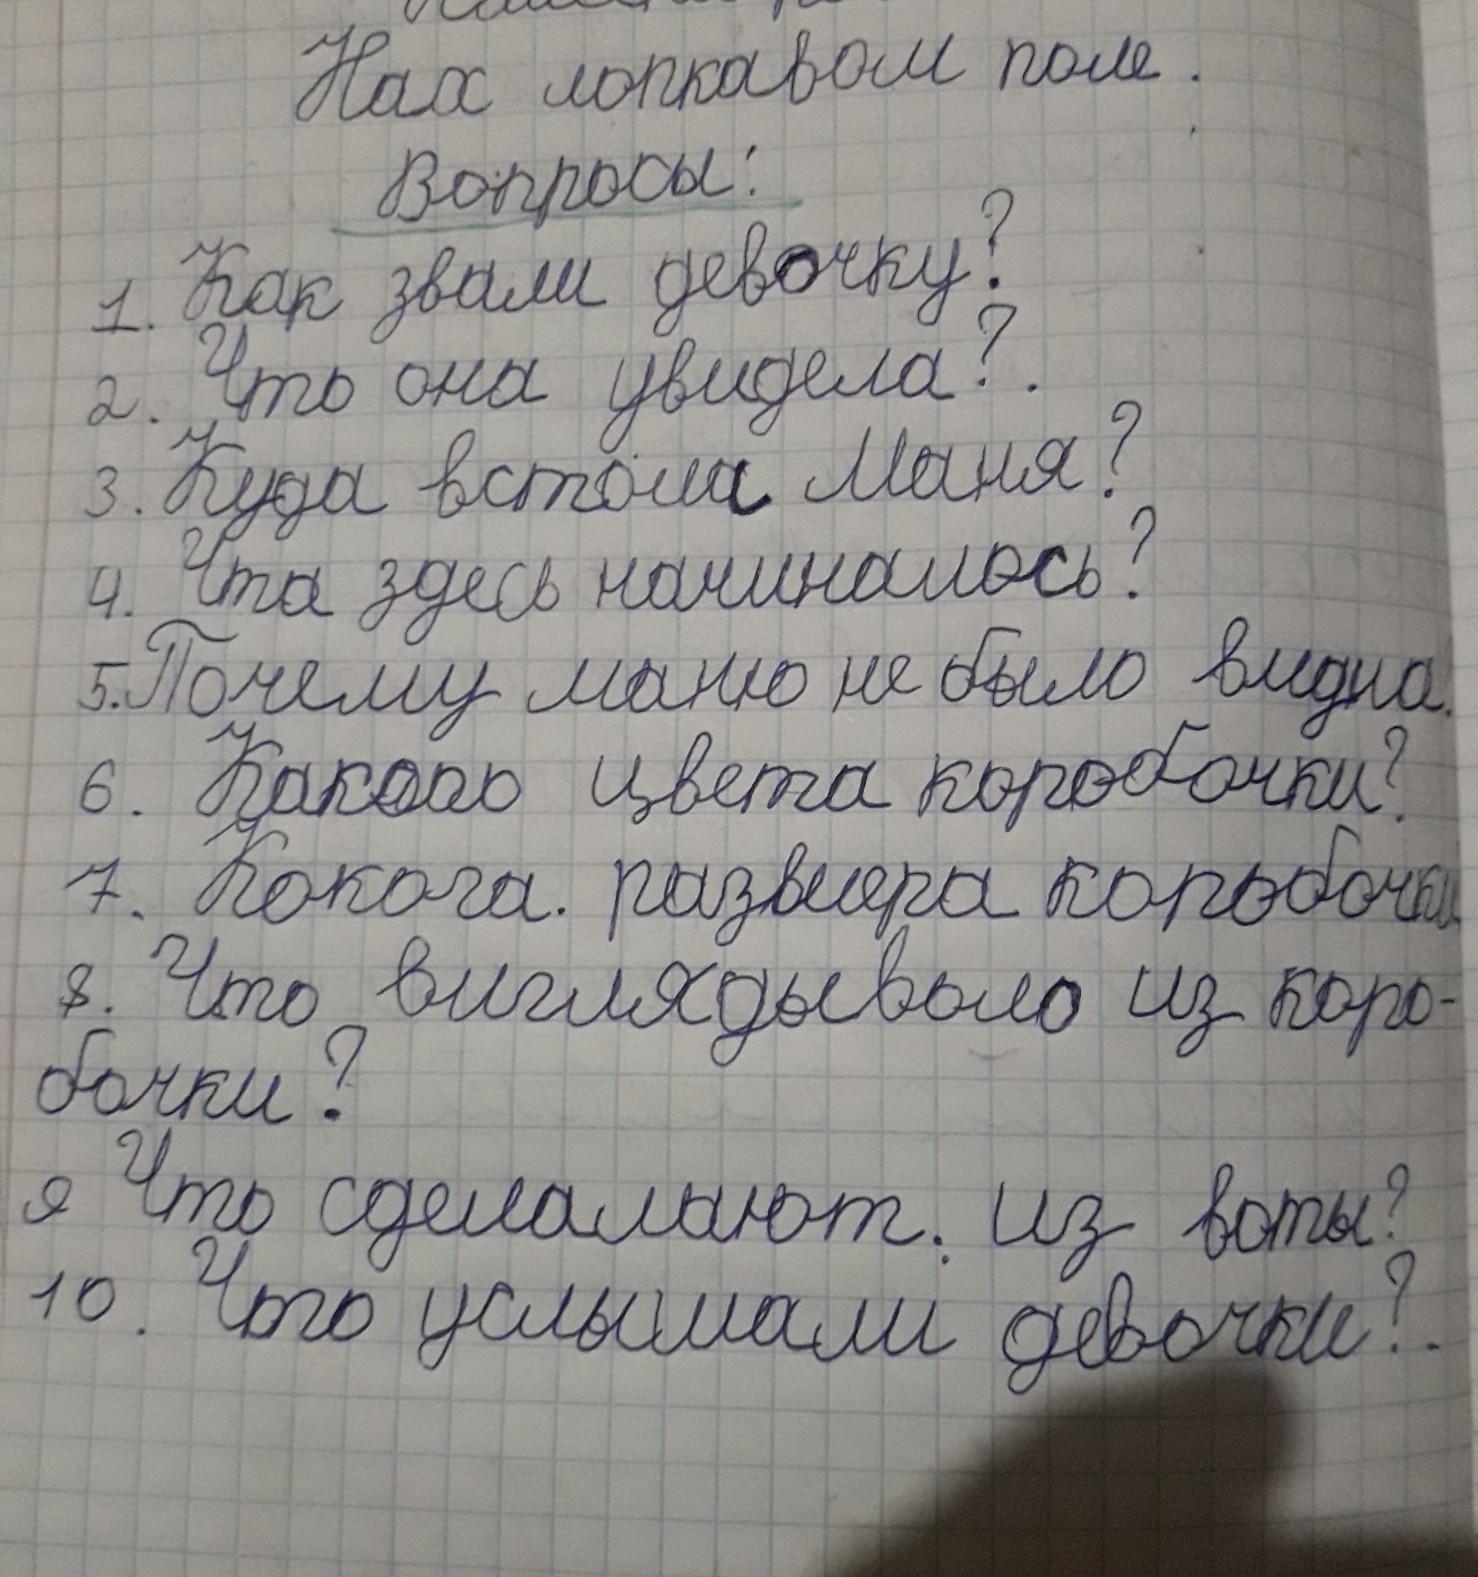 Нах лопкавом поле.
Вопросы:
1. Как звали девочку?
2. Что она увидела?.
3. Куда встола Маня?
4. Чта здесь начиналось?
5. Почему маню не было видна.
6. Какого цвета коробочки?
7. Кокога. размера коробочки
8. Что виглядывало из коро-
бочки?
9 Что сделалают. из воты?
10. Что услышали девочки?.